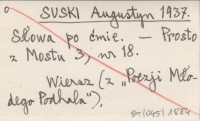 SUSKI Augustyn 1937.
Słowa po ćmie. — Prosto
z Mostu 3, nr 18.
Wiersz (z „Poezji Mło-
dego Podhala").